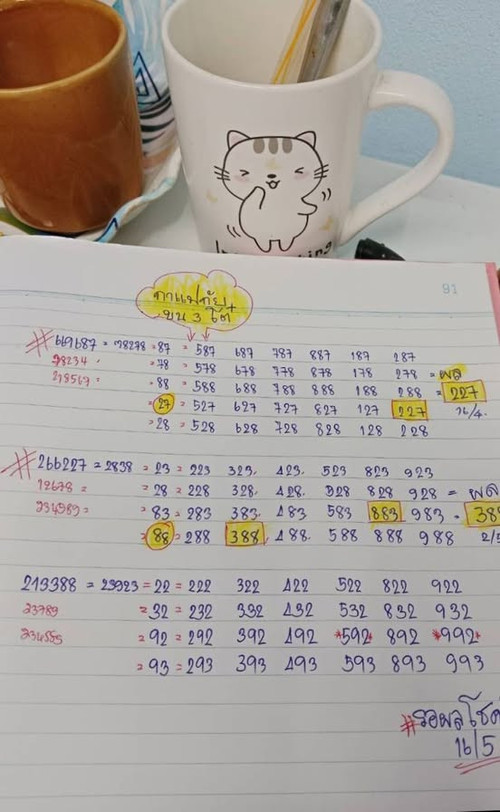 91
กาแฟภัย
บน 3 โต๊ด
669687 = 78278 = 87 = 587 687 787 887 187 287
78234 = 78 = 578 678 778 878 178 278 = ผล
= 88 = 588 688 788 888 188 288 = 227
= 27 = 527 627 727 827 127 227 16/4
= 28 = 528 628 728 828 128 228
266227 = 2838 = 23 = 223 323 423 523 823 923
12678 = = 28 = 228 328 428 528 828 928 = ผล
234989 = = 83 = 283 383 483 583 883 983 = 388
= 88 = 288 388 488 588 888 988 2/5
213388 = 23923 = 22 = 222 322 422 522 822 922
23789 = 32 = 232 332 432 532 832 932
= 92 = 292 392 492 *592* 892 *992*
= 93 = 293 393 493 593 893 993
#รอผลโชค
16/5